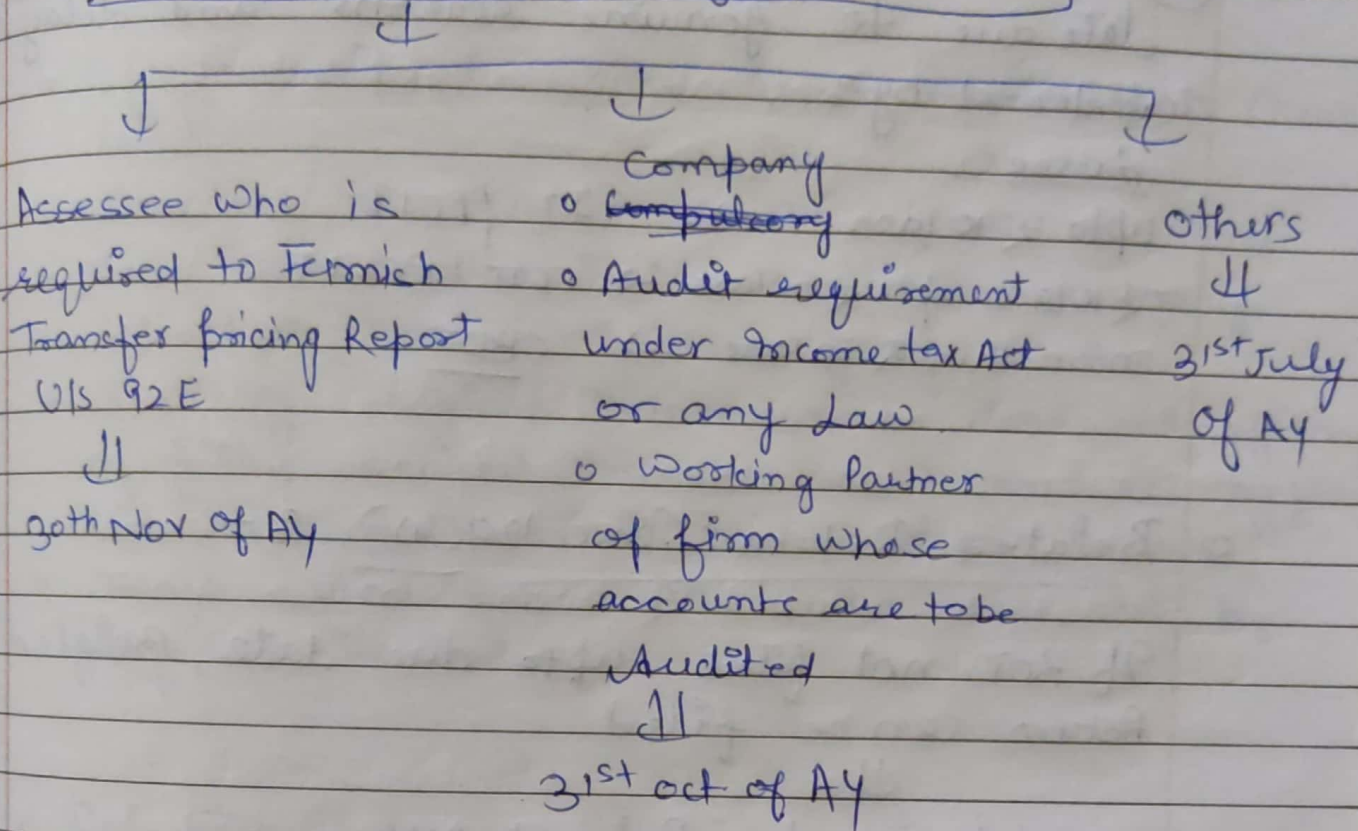 Assessee who is
required to Furnish
Transfer pricing Report
U/s 92E
30th Nov of AY
Company
o Compulsory
o Audit requirement
under Income tax Act
or any Law
o Working Partner
of firm whose
accounts are to be
Audited
31st oct of AY
others
31st July
of AY